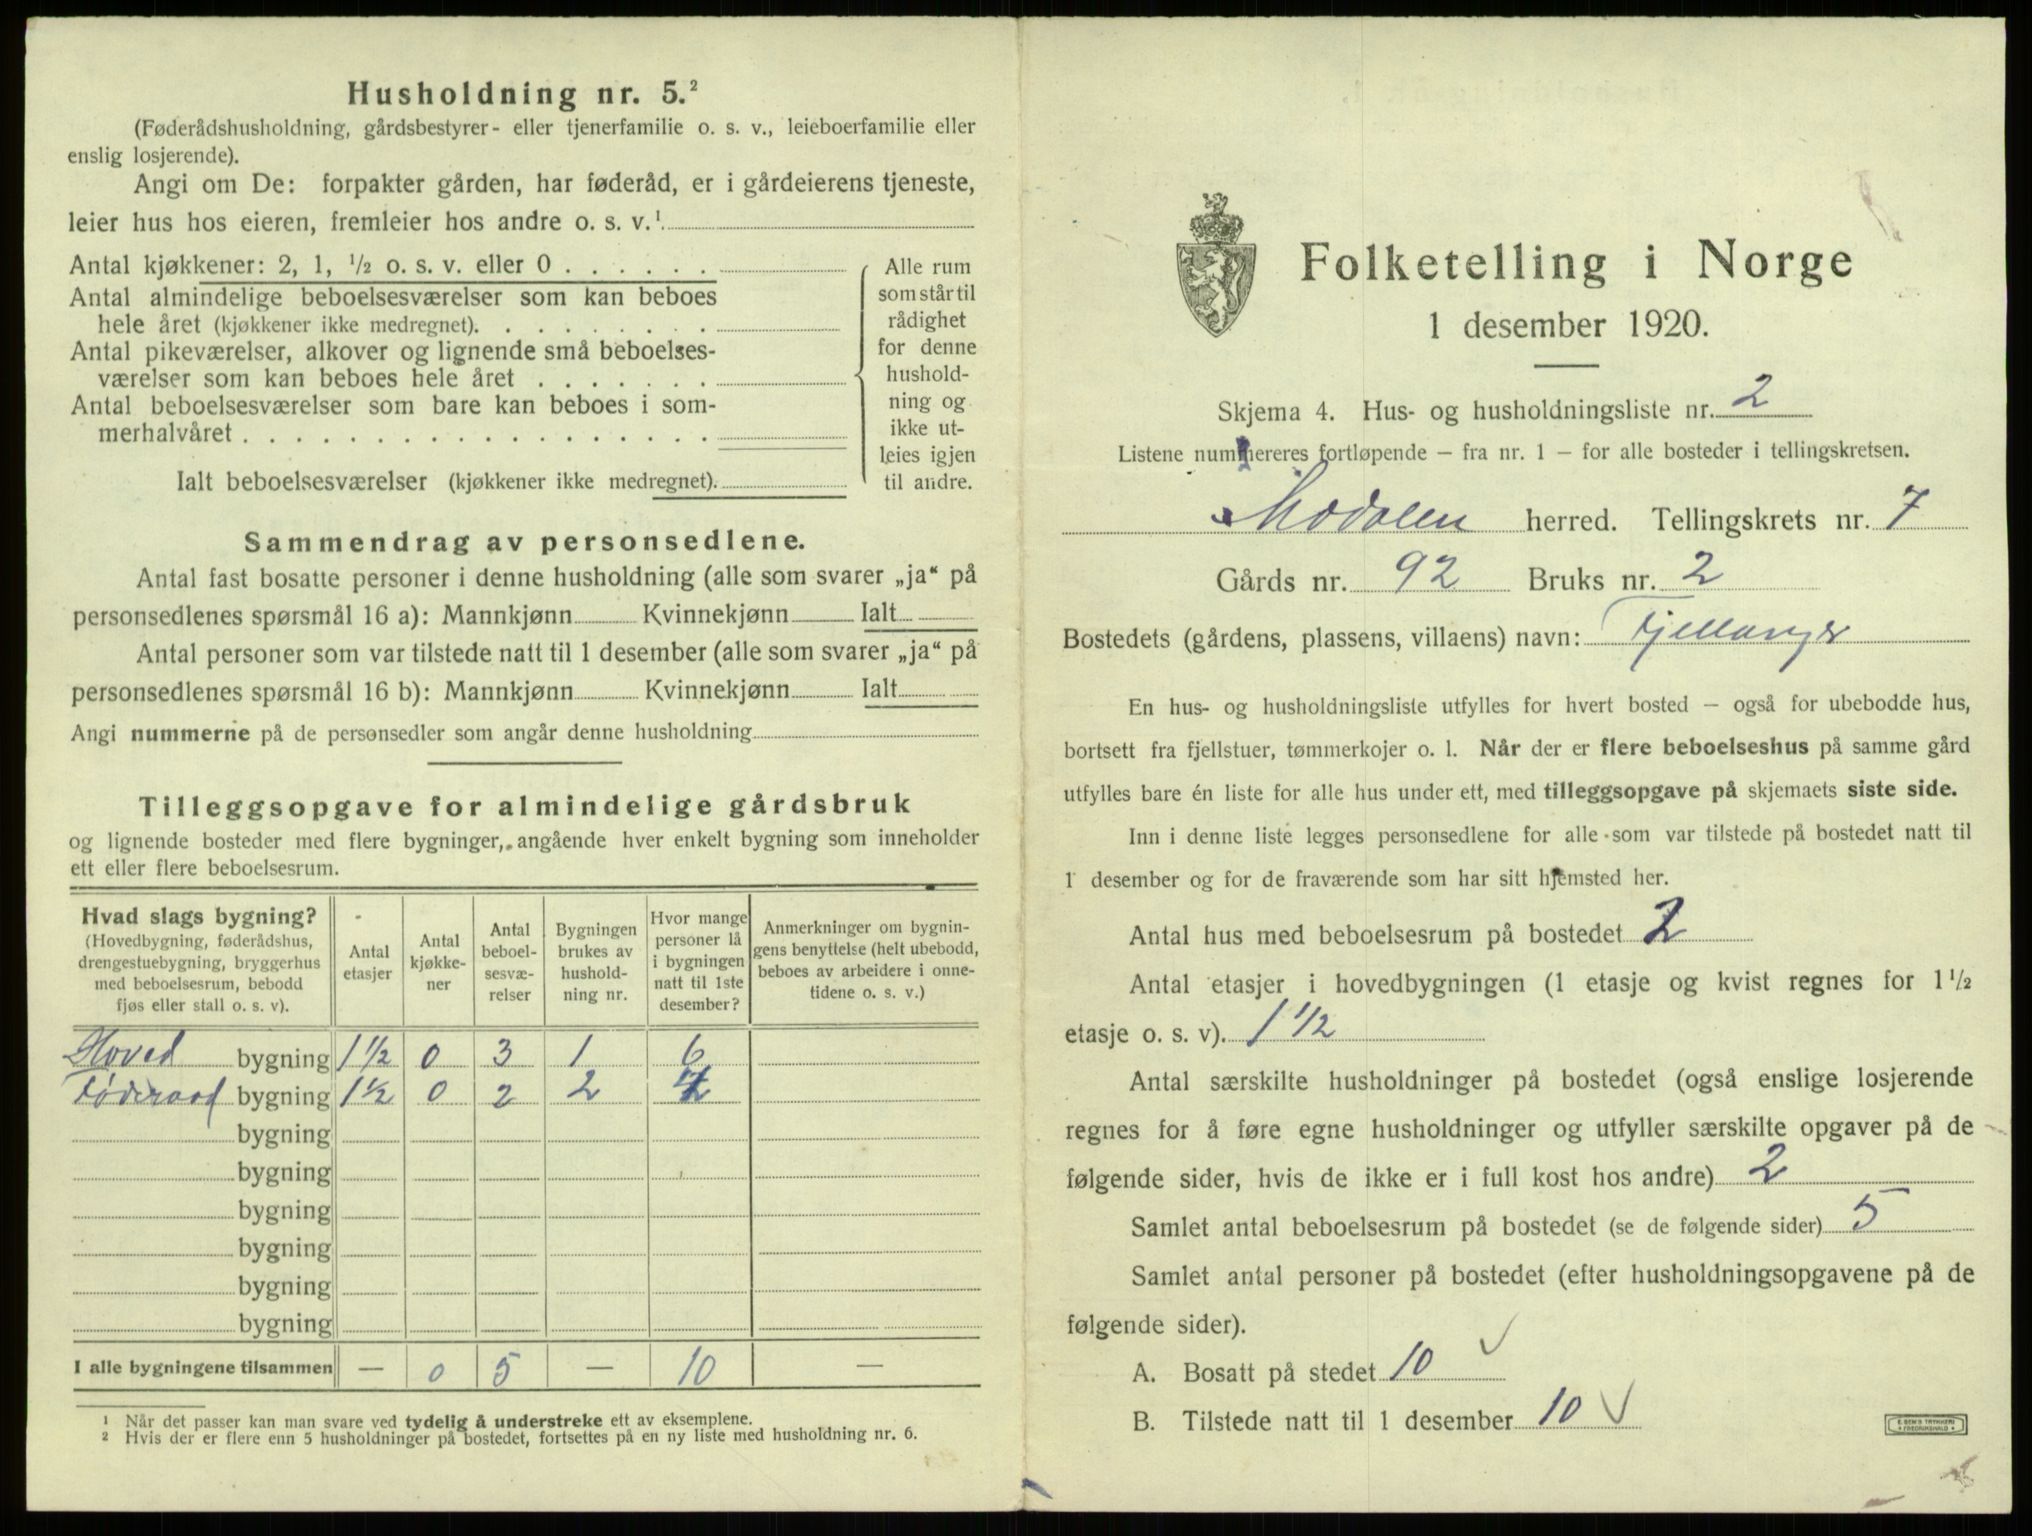 Husholdning nr. 5.²
(Føderådshusholdning, gårdsbestyrer- eller tjenerfamilie o. s. v., leieboerfamilie eller
enslig losjerende).
Angi om De: forpakter gården, har føderåd, er i gårdeierens tjeneste,
leier hus hos eieren, fremleier hos andre o. s. v.¹
Antal kjøkkener: 2, 1, ½ o. s. v. eller 0
Antal almindelige beboelsesværelser som kan beboes
hele året (kjøkkener ikke medregnet).
Antal pikeværelser, alkover og lignende små beboelses-
værelser som kan beboes hele året
Antal beboelsesværelser som bare kan beboes i som-
merhalvåret
Ialt beboelsesværelser (kjøkkener ikke medregnet).
Alle rum
som står til
rådighet
for denne
hushold-
ning og
ikke ut-
leies igjen
til andre.
Sammendrag av personsedlene.
Antal fast bosatte personer i denne husholdning (alle som svarer „ja“ på
personsedlenes spørsmål 16 a): Mannkjønn Kvinnekjønn Ialt
Antal personer som var tilstede natt til 1 desember (alle som svarer „ja“ på
personsedlenes spørsmål 16 b): Mannkjønn Kvinnekjønn Ialt
Angi nummerne på de personsedler som angår denne husholdning
Tilleggsopgave for almindelige gårdsbruk
og lignende bosteder med flere bygninger, angående hver enkelt bygning som inneholder
ett eller flere beboelsesrum.
Hvad slags bygning?
(Hovedbygning, føderådshus,
drengestuebygning, bryggerhus
med beboelsesrum, bebodd
fjøs eller stall o. s. v).
Antal
etasjer
Antal
kjøkke-
ner
Antal
beboel-
sesvæ-
relser
Bygningen
brukes av
hushold-
ning nr.
Hvor mange
personer lå
i bygningen
natt til 1ste
desember?
Anmerkninger om bygnin-
gens benyttelse (helt ubebodd,
beboes av arbeidere i onne-
tidene o. s. v.)
Hoved bygning 1 ½ 0 3 1 6
Føderaad bygning 1 ½ 0 2 2 4
bygning
bygning
bygning
bygning
bygning
bygning
I alle bygningene tilsammen — 0 5 — 10 —
¹ Når det passer kan man svare ved tydelig å understreke ett av eksemplene.
² Hvis der er flere enn 5 husholdninger på bostedet, fortsettes på en ny liste med husholdning nr. 6.
Folketelling i Norge
1 desember 1920.
Skjema 4. Hus- og husholdningsliste nr. 2
Listene nummereres fortløpende — fra nr. 1 — for alle bosteder i tellingskretsen.
Modalen herred. Tellingskrets nr. 7
Gårds nr. 92 Bruks nr. 2
Bostedets (gårdens, plassens, villaens) navn: Fjellanger
En hus- og husholdningsliste utfylles for hvert bosted — også for ubebodde hus,
bortsett fra fjellstuer, tømmerkojer o. l. Når der er flere beboelseshus på samme gård
utfylles bare én liste for alle hus under ett, med tilleggsopgave på skjemaets siste side.
Inn i denne liste legges personsedlene for alle som var tilstede på bostedet natt til
1 desember og for de fraværende som har sitt hjemsted her.
Antal hus med beboelsesrum på bostedet 2
Antal etasjer i hovedbygningen (1 etasje og kvist regnes for 1½
etasje o. s. v). 1 ½
Antal særskilte husholdninger på bostedet (også enslige losjerende
regnes for å føre egne husholdninger og utfyller særskilte opgaver på de
følgende sider, hvis de ikke er i full kost hos andre) 2
Samlet antal beboelsesrum på bostedet (se de følgende sider) 5
Samlet antal personer på bostedet (efter husholdningsopgavene på de
følgende sider).
A. Bosatt på stedet 10 ✓
B. Tilstede natt til 1 desember 10 ✓